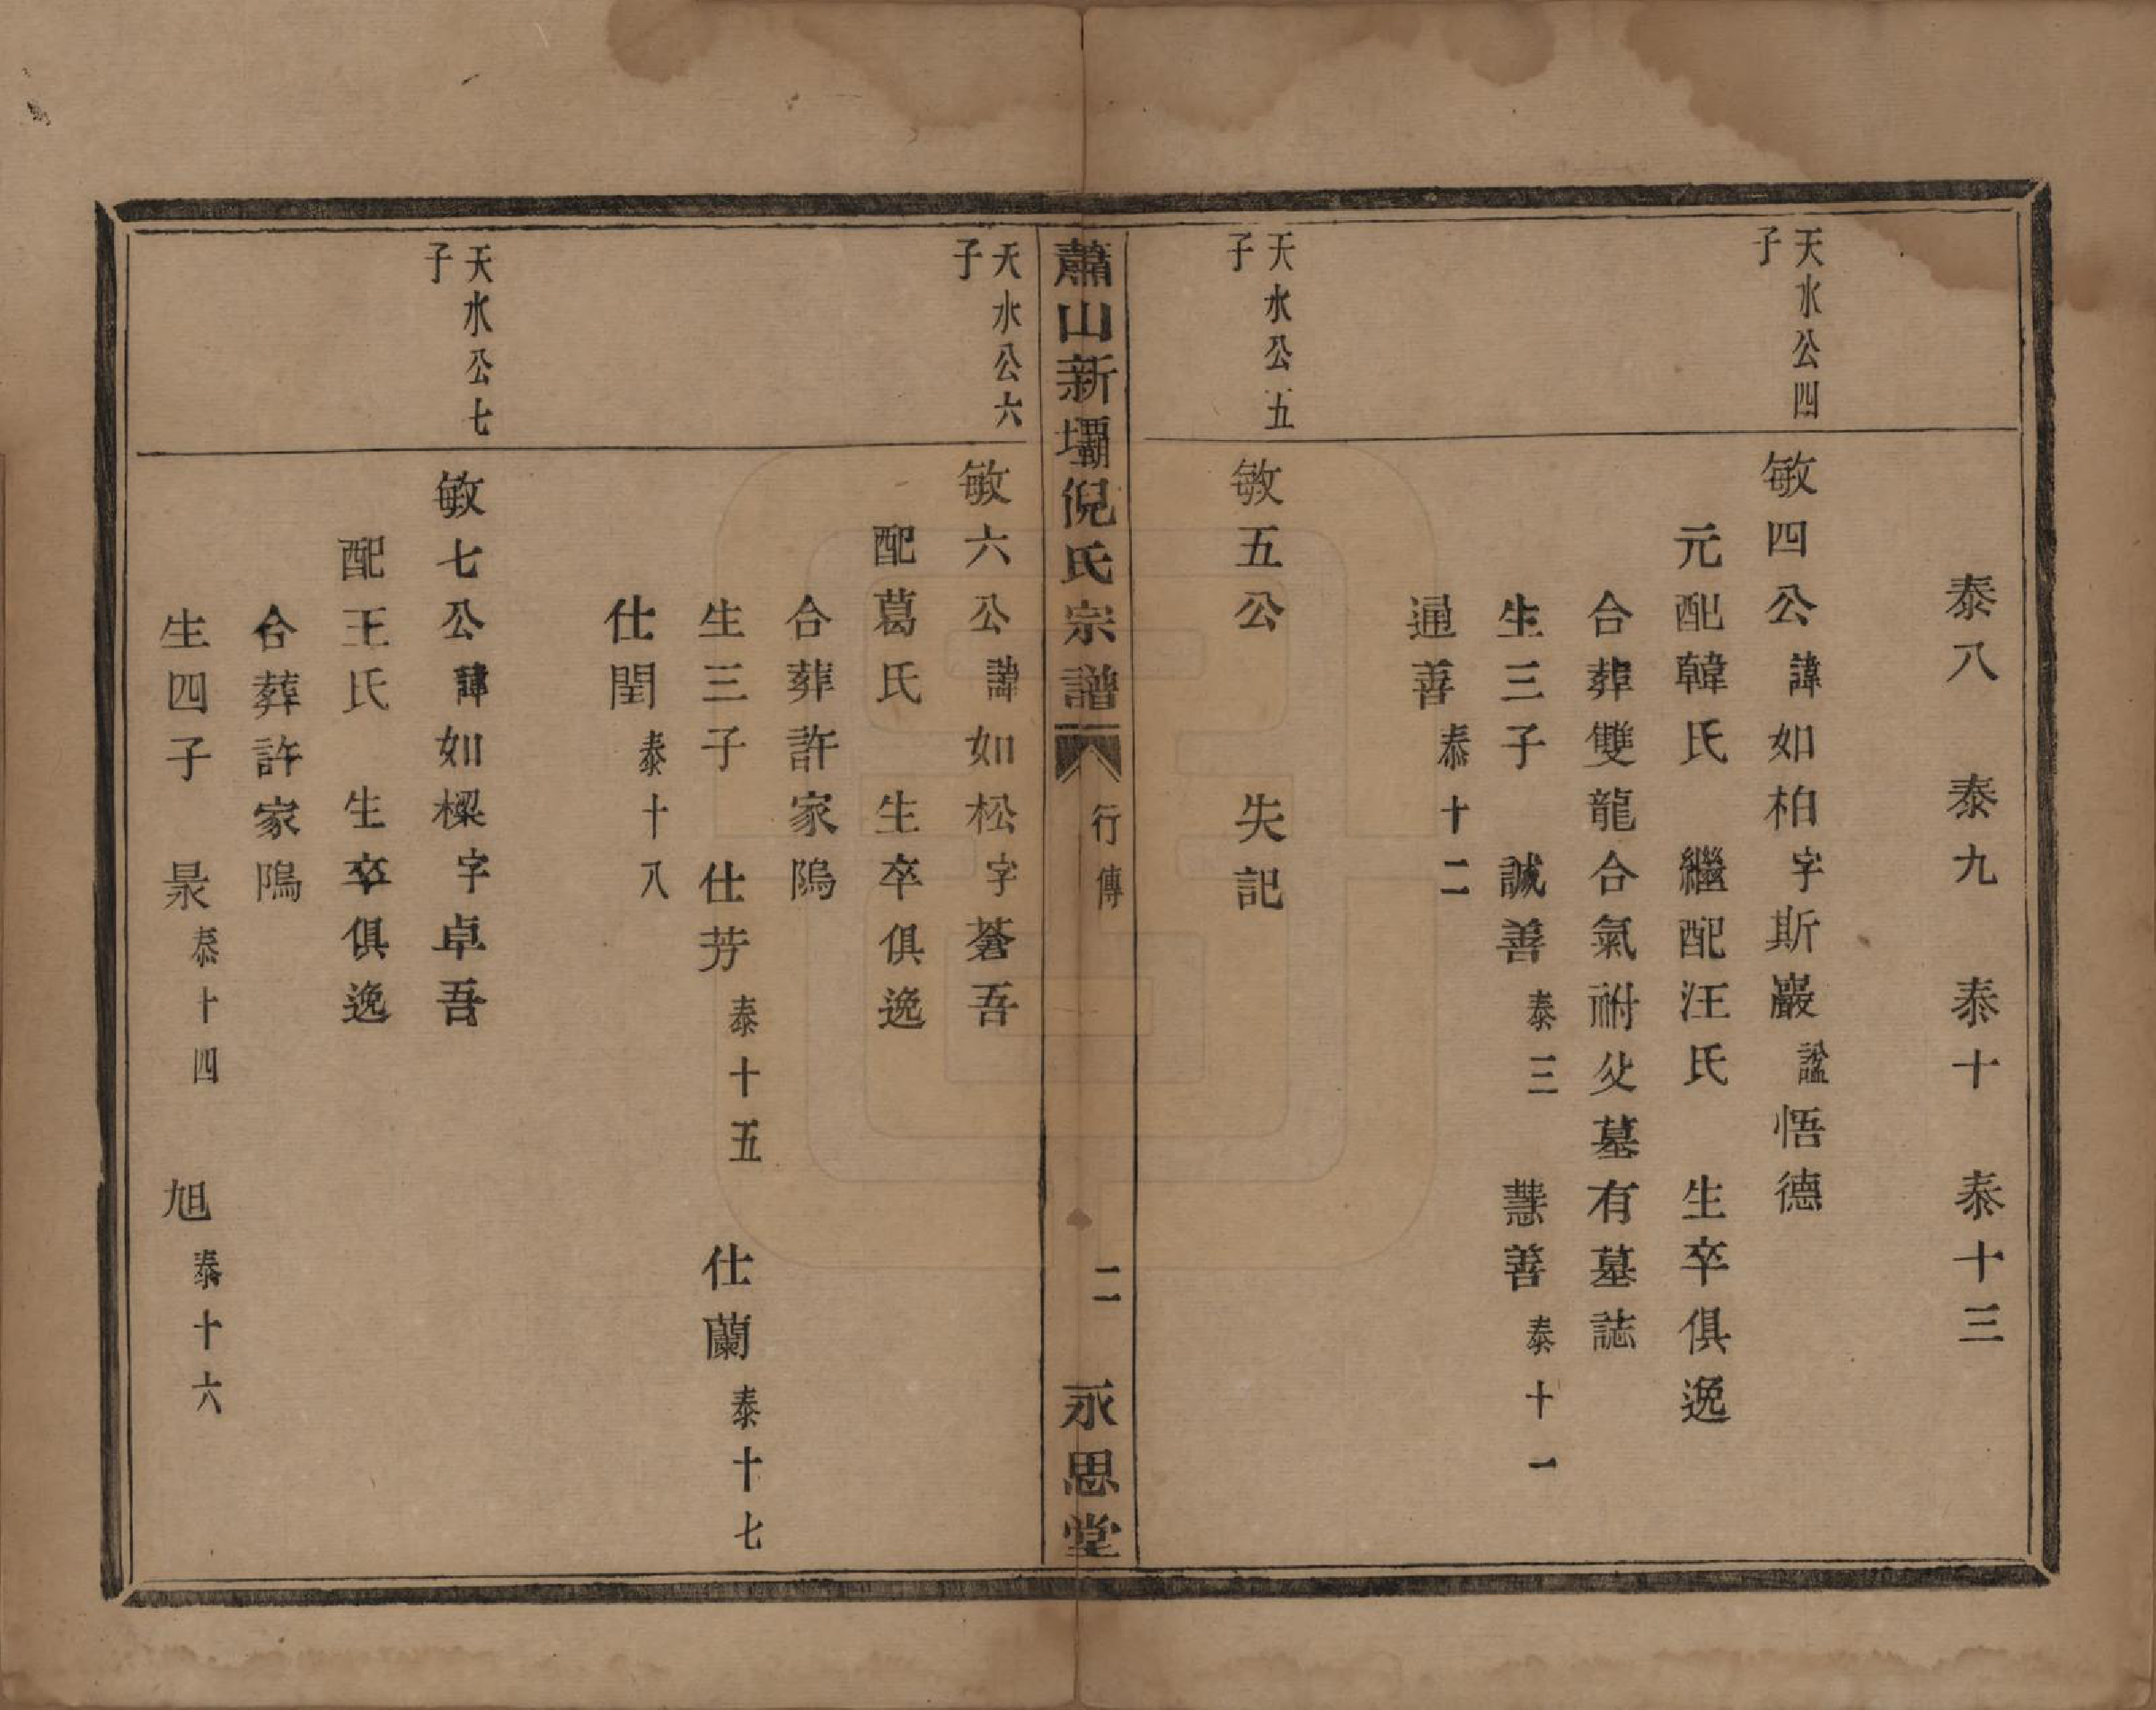 泰八　泰九　泰十　泰十三
天水公四
子
敏四公諱如柏字斯巖諡悟德
元配韓氏　繼配汪氏　生卒俱逸
合葬雙龍合氣祔父墓有墓誌
生三子　誠善泰三　慧善泰十一
通善泰十二
天水公五
子
敏五公　失記
蕭山新壩倪氏宗譜　行傳　二　永思堂
天水公六
子
敏六公諱如松字蒼吾
配葛氏　生卒俱逸
合葬許家隝
生三子　仕芳泰十五　仕蘭泰十七
仕閏泰十八
天水公七
子
敏七公諱如樑字卓吾
配王氏　生卒俱逸
合葬許家隝
生四子　杲泰十四　旭泰十六